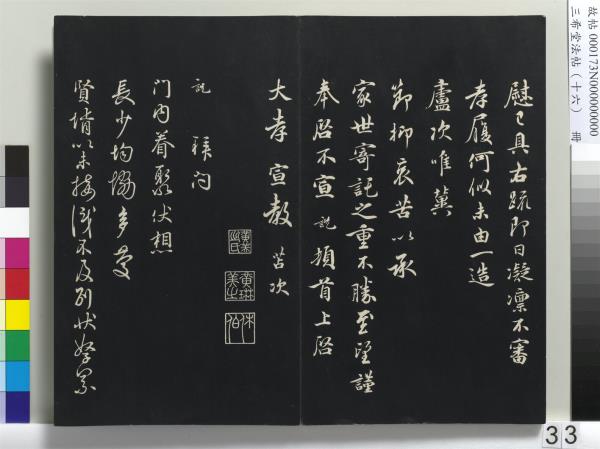 故帖 000173N000000000
三希堂法帖（十六） 冊
慰已具右疏即日凝凛不審
孝履何似未由一造
廬次唯冀
節抑哀苦以承
家世寄託之重不勝至望謹
奉啓不宣 訖頓首上啓
大孝宣教 苫次
訖 拜問
門內眷聚伏想
長少均慟多慶
賢壻以未接識不及別狀
33